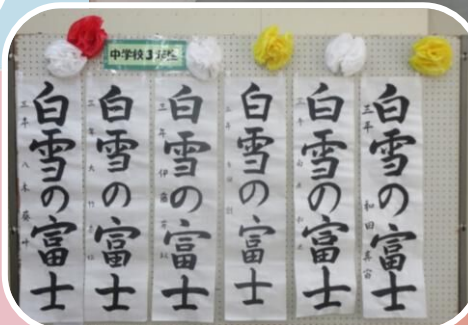 中学校3年生
白雪の富士
三年 和田真宙
白雪の富士
三年
白雪の富士
三年
白雪の富士
三年 伊
白雪の富士
三年 大竹
白雪の富士
三年 八木葵叶